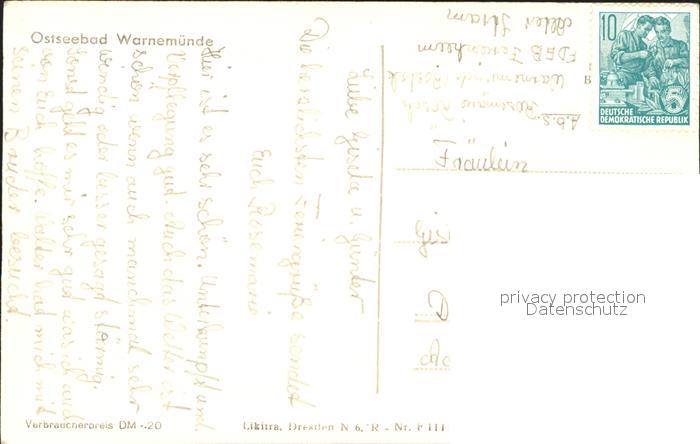 Ostseebad Warnemünde
Liebe Gisela u. Günter
Die herzlichsten Feriengrüße sendet
Euch Rosemarie
Hier ist es sehr schön. Unterkunft und
Verpflegung gut. Auch das Wetter ist
schön wenn auch manchmal sehr
windig oder besser gesagt stürmig.
Sonst geht es mir sehr gut was ich auch
von Euch hoffe. Walter hat mich mit
seinem Bruder besucht.
Abs.
Rosemarie
Warnemünde Rostock
FDGB Ferienheim
Alter Strom
10
5
DEUTSCHE
DEMOKRATISCHE REPUBLIK
B
Fräulein
privacy protection
Datenschutz
Verbraucherpreis DM -.20
Likitra, Dresden N 6, R - Nr. F 111